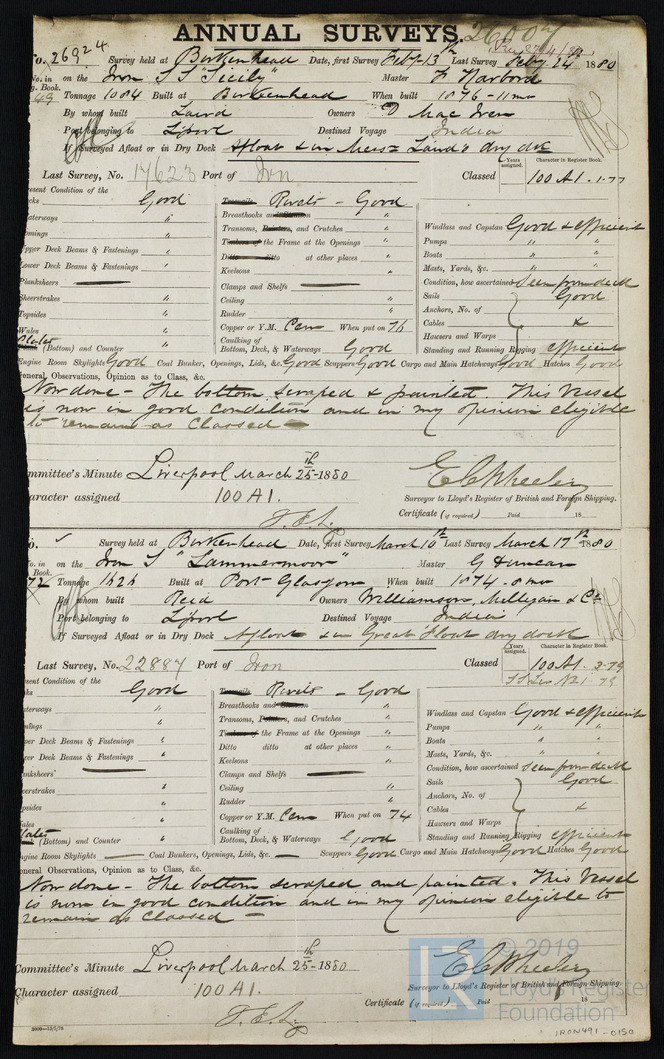 ANNUAL SURVEYS.
No. 26924 Survey held at Birkenhead Date, first Survey Feby 13th Last Survey Feby 24th 1880
No. in on the Iron SS "Sicily" Master
Book. 49 Tonnage 1084 Built at Birkenhead When built 1876 - 11mo
By whom built Laird Owners D Mac Iver
Port belonging to Lpool Destined Voyage India
If Surveyed Afloat or in Dry Dock Afloat & in Messrs Laird's dry dk
Last Survey, No. 17623 Port of Iron Classed Years assigned. Character in Register Book. 100 A1. 1-77
resent Condition of the
cks Good
aterways "
omings "
pper Deck Beams & Fastenings "
ower Deck Beams & Fastenings "
Planksheers
Sheerstrakes "
Topsides "
Wales "
Plates (Bottom) and Counter "
Rivets - Good
Breasthooks "
Transoms, Pointers, and Crutches "
Timbers of the Frame at the Openings "
Ditto ditto at other places "
Keelsons "
Clamps and Shelfs
Ceiling "
Rudder "
Copper or Y.M. Cem When put on 76
Caulking of Bottom, Deck, & Waterways Good
Windlass and Capstan Good & efficient
Pumps " "
Boats " "
Masts, Yards, &c. " "
Condition, how ascertained Seen from deck
Sails Good
Anchors, No. of
Cables &
Hawsers and Warps
Standing and Running Rigging efficient
Engine Room Skylights Good Coal Bunker, Openings, Lids, &c. Good Scuppers Good Cargo and Main Hatchways Good Hatches Good
eneral Observations, Opinion as to Class, &c.
Now done - The bottom scraped & painted. This Vessel
is now in good condition and in my opinion eligible
to remain as Classed -
ommittee's Minute Liverpool March 25th - 1880
haracter assigned 100 A1.
E C Wheeler
Surveyor to Lloyd's Register of British and Foreign Shipping.
Certificate (if required) Paid 18
No. Survey held at Birkenhead Date, first Survey March 10th Last Survey March 17th 1880
No. in on the Iron S "Lammermoor" Master G Duncan
Book. 72 Tonnage 1626 Built at Port Glasgow When built 1874 - 8mo
By whom built Reid Owners Williamson, Milligan & Co
Port belonging to Lpool Destined Voyage India
If Surveyed Afloat or in Dry Dock Afloat & in Great Float dry dock
Last Survey, No. 22887 Port of Iron Classed Years assigned. Character in Register Book. 100 A1. 3-79
esent Condition of the
cks Good
aterways "
mings "
per Deck Beams & Fastenings "
wer Deck Beams & Fastenings "
nksheers
eerstrakes "
psides "
ales "
Plates (Bottom) and Counter "
Rivets - Good
Breasthooks "
Transoms, Pointers, and Crutches "
Timbers of the Frame at the Openings "
Ditto ditto at other places "
Keelsons "
Clamps and Shelfs
Ceiling "
Rudder "
Copper or Y.M. Cem When put on 74
Caulking of Bottom, Deck, & Waterways Good
Windlass and Capstan Good & efficient
Pumps " "
Boats " "
Masts, Yards, &c. " "
Condition, how ascertained Seen from deck
Sails Good
Anchors, No. of
Cables &
Hawsers and Warps
Standing and Running Rigging efficient
ngine Room Skylights Coal Bunkers, Openings, Lids, &c. Scuppers Good Cargo and Main Hatchways Good Hatches Good
eneral Observations, Opinion as to Class, &c.
Now done - The bottom scraped and painted. This Vessel
is now in good condition and in my opinion eligible to
remain as Classed -
Committee's Minute Liverpool March 25th - 1880
Character assigned 100 A1.
E C Wheeler
Surveyor to Lloyd's Register of British and Foreign Shipping.
Certificate (if required) Paid 18
© 2019
Lloyd's Register
Foundation
IRON491-0150